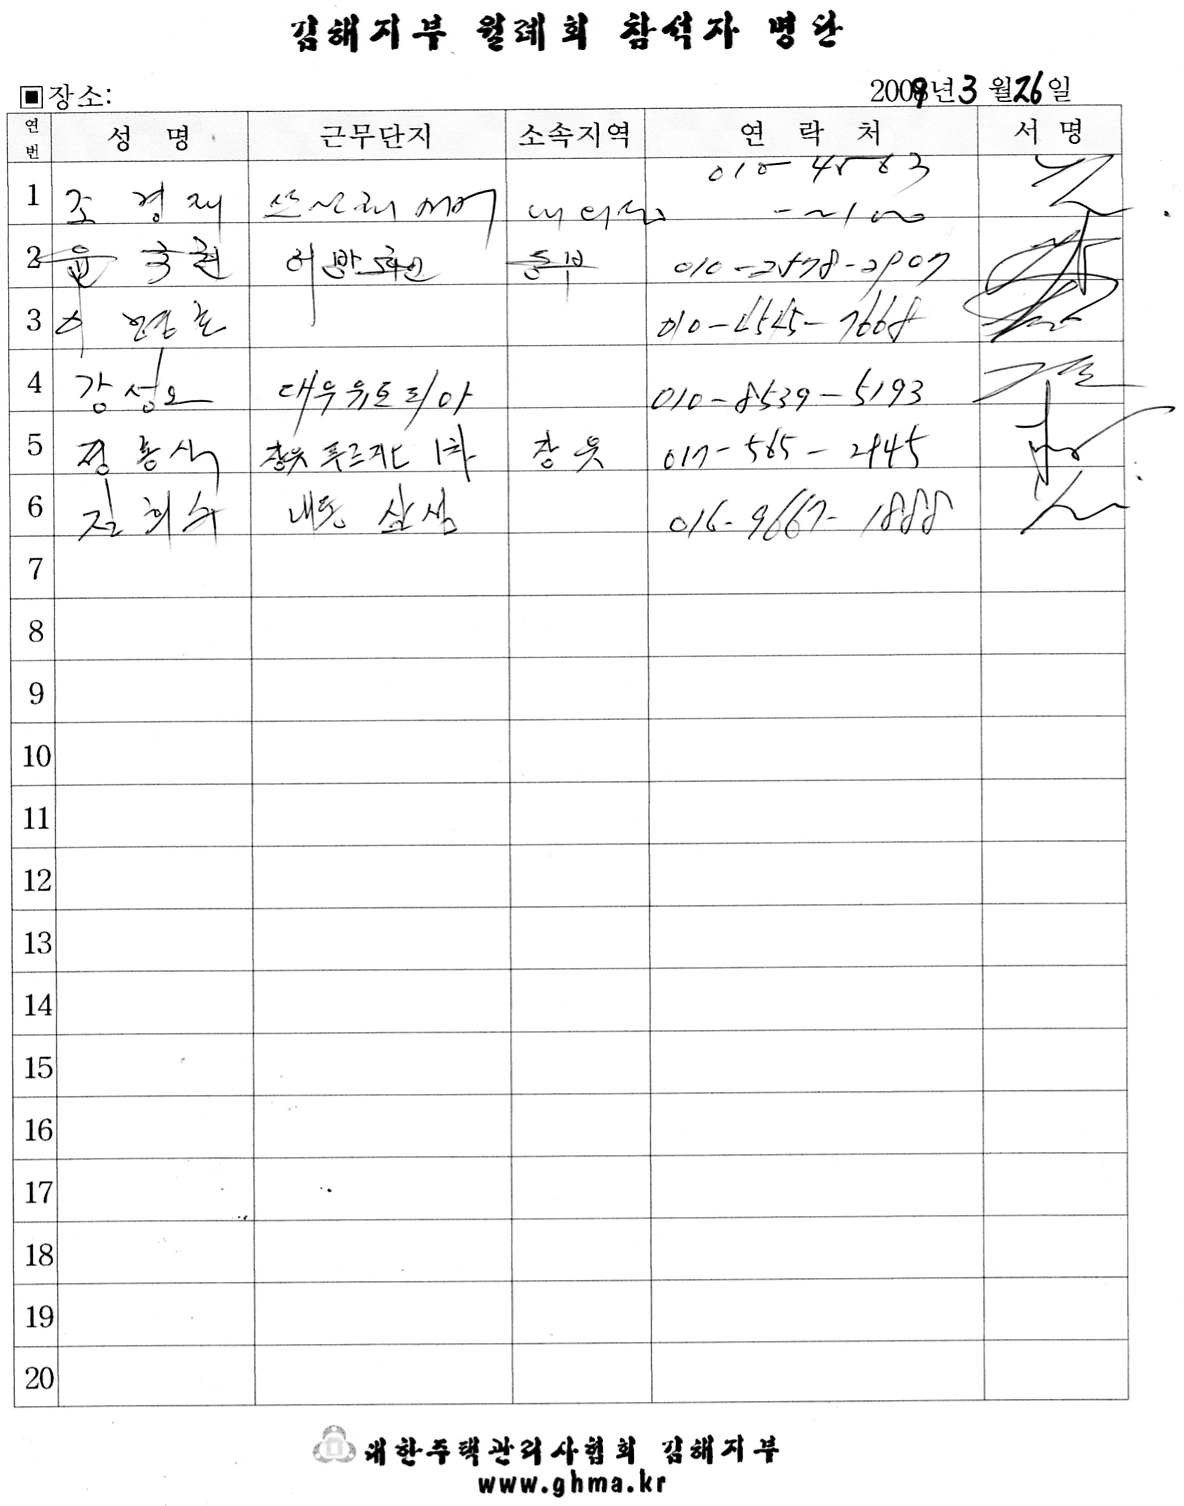 김해지부 월례회 참석자 명단
▣장소: 2009년 3월 26일
연번 성 명 근무단지 소속지역 연 락 처 서 명
1 조 경 재
2 윤 국 권 어방 동부 010-2578-2907
3 이 010-4545-7668
4 강성오 대우유토피아 010-8539-5193
5 정 용 식 장유 푸르지오 1차 장유 017-565-2945
6 김 희 수 내동 삼성 016-9667-1888
7
8
9
10
11
12
13
14
15
16
17
18
19
20
대한주택관리사협회 김해지부
www.ghma.kr